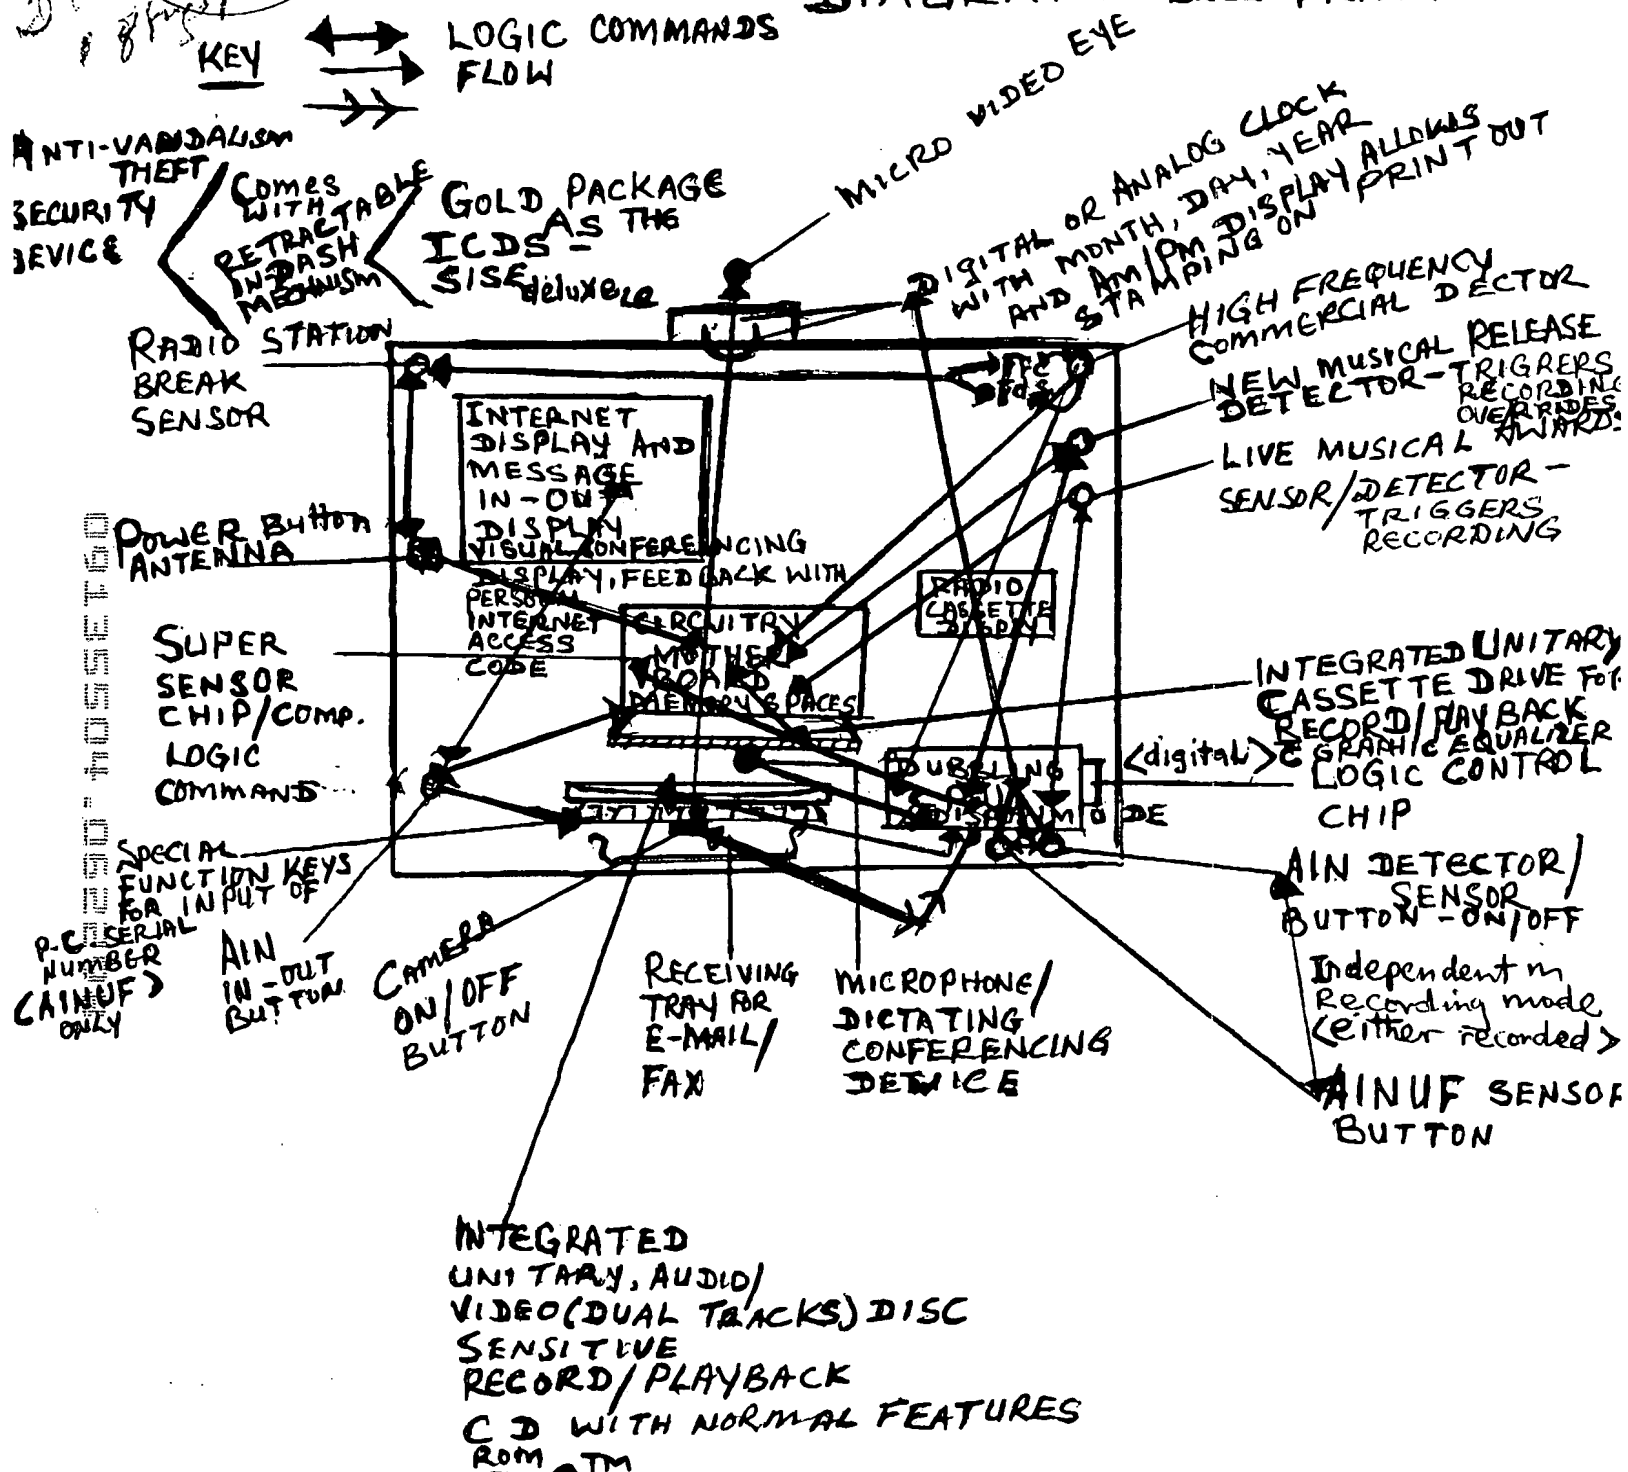 KEY
LOGIC COMMANDS
FLOW
MICRO VIDEO EYE
ANTI-VANDALISM
THEFT
SECURITY
DEVICE
COMES
WITH
RETRACTABLE
IN-DASH
MECHNISM
GOLD PACKAGE
AS THE
ICDS -
SISE deluxe LE
DIGITAL OR ANALOG CLOCK
WITH MONTH, DAY, YEAR
AND AM/PM DISPLAY ALLOWS
STAMPING ON PRINT OUT
HIGH FREQUENCY
COMMERCIAL DECTOR
NEW MUSICAL RELEASE
DETECTOR-TRIGRERS
RECORDING
OVERRIDES
LIVE MUSICAL AWARDS
SENSOR/DETECTOR -
TRIGGERS
RECORDING
RADIO STATION
BREAK
SENSOR
INTERNET
DISPLAY AND
MESSAGE
IN-OUT
DISPLAY
VISUAL CONFERENCING
DISPLAY, FEEDBACK WITH
PERSONAL
INTERNET
ACCESS
CODE
POWER BUTTON
ANTENNA
CIRCUITRY
MOTHER
BOARD
MEMORY SPACES
RADIO
CASSETTE
DISPLAY
SUPER
SENSOR
CHIP/COMP.
LOGIC
COMMAND
INTEGRATED UNITARY
CASSETTE DRIVE FOR
RECORD/PLAYBACK
<digital> C GRAPHIC EQUALIZER
LOGIC CONTROL
CHIP
DUBBLING
MODE
SPECIAL
FUNCTION KEYS
FOR INPUT OF
P.C. SERIAL
NUMBER
(AINUF>
ONLY
AIN
IN-OUT
BUTTON
CAMERA
ON/OFF
BUTTON
RECEIVING
TRAY FOR
E-MAIL/
FAX
MICROPHONE/
DICTATING
CONFERENCING
DEVICE
AIN DETECTOR/
SENSOR
BUTTON-ON/OFF
Independent in
Recording mode
<either recorded>
AINUF SENSOR
BUTTON
INTEGRATED
UNITARY, AUDIO/
VIDEO(DUAL TRACKS) DISC
SENSITIVE
RECORD/PLAYBACK
CD WITH NORMAL FEATURES
ROM
TM